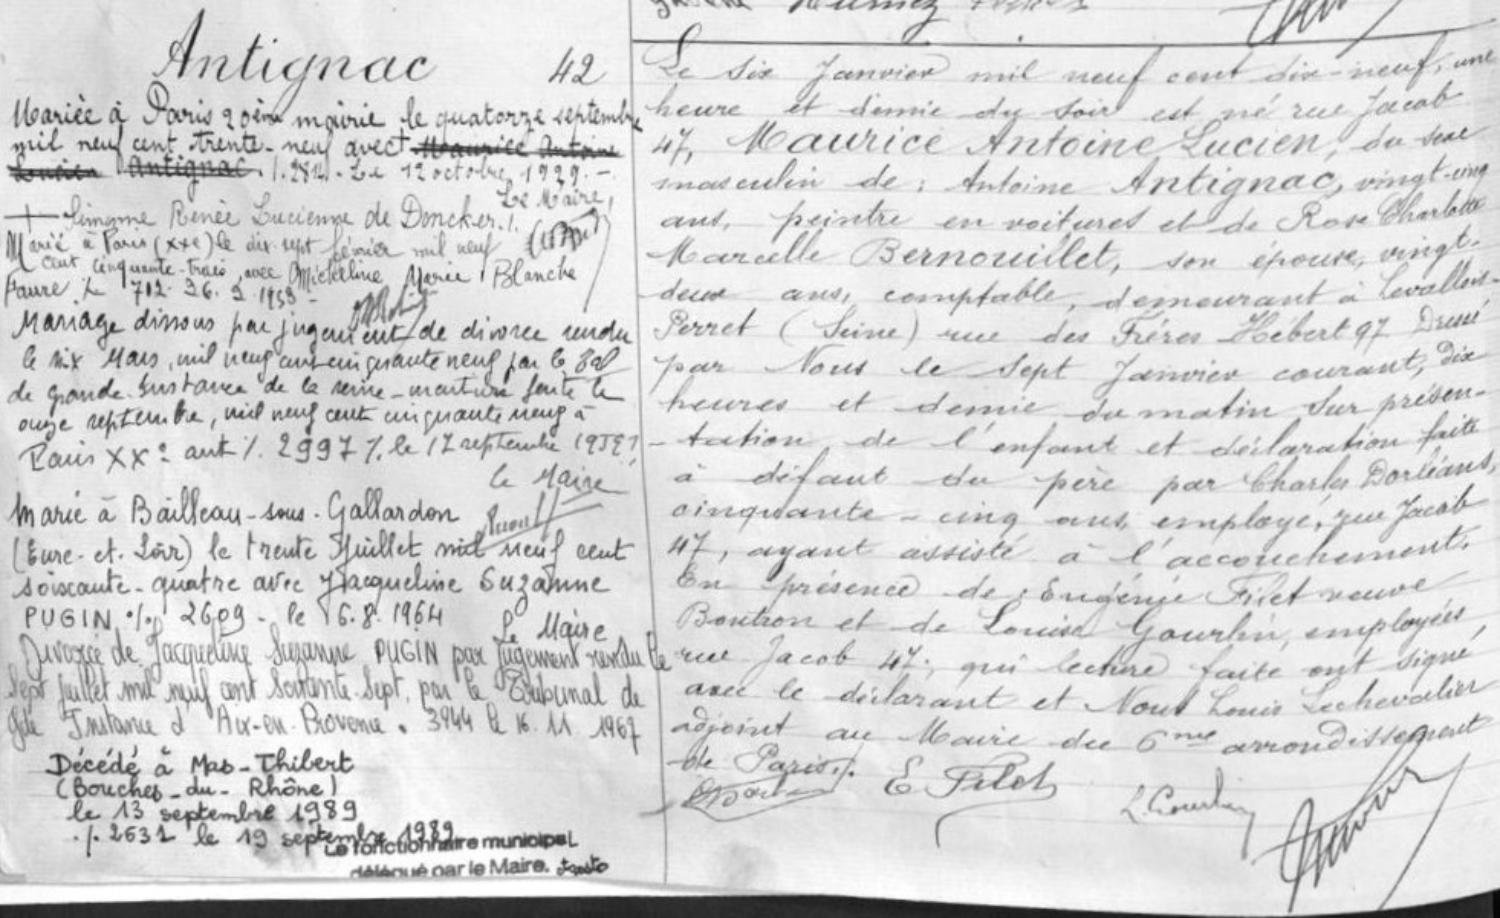 Antignac 42
Mariée à Paris 20ème mairie le quatorze septembre
mil neuf cent trente-neuf avec + Maurice Antoine
Lucien Antignac. /. 2814. Le 12 octobre 1939. -
Le Maire,
+ Simonne Renée Lucienne de Doncker./.
Marié à Paris (XXe) le dix-sept février mil neuf
cent cinquante-trois, avec Micheline Marie Blanche
Faure /. 702. 26. 2. 1953 -
Mariage dissous par jugement de divorce rendu
le six Mars, mil neuf cent cinquante neuf par le
de grande Instance de la Seine - mention faite le
onze septembre, mil neuf cent cinquante neuf à
Paris XXe ant /. 2997 /. le 17 septembre 1959
le Maire
Marié à Bailleau-sous-Gallardon
(Eure-et-Loir) le trente Juillet mil neuf cent
soixante-quatre avec Jacqueline Suzanne
PUGIN ./. 2609 - le 6.8.1964
Le Maire
Divorcé de Jacqueline Suzanne PUGIN par Jugement rendu le
Sept Juillet mil neuf cent Soixante Sept, par le Tribunal de
Gde Instance d'Aix-en-Provence. 3944 le 16. 11. 1967
Décédé à Mas-Thibert
(Bouches-du-Rhône)
le 13 septembre 1989
./. 2631 le 19 septembre 1989
Le fonctionnaire municipal
délégué par le Maire.
Le six Janvier mil neuf cent dix-neuf, une
heure et demie du soir est né rue Jacob
47, Maurice Antoine Lucien, du sexe
masculin de : Antoine Antignac, vingt-cinq
ans, peintre en voitures et de Rose Charlotte
Marcelle Bernouillet, son épouse, vingt-
deux ans, comptable, demeurant à Levallois-
Perret (Seine) rue des Frères Hébert 97 Dressé
par Nous le sept Janvier courant, dix
heures et demie du matin sur présen-
-tation de l'enfant et déclaration faite
à défaut du père par Charles Dorléans,
cinquante-cinq ans, employé, rue Jacob
47, ayant assisté à l'accouchement.
En présence de : Eugénie Filet veuve
Boutron et de Louise Gourlin, employées,
rue Jacob 47; qui lecture faite ont signé
avec le déclarant et Nous Louis Lechevalier
adjoint au Maire du 6me arrondissement
de Paris./.
E Filet
L. Gourlin